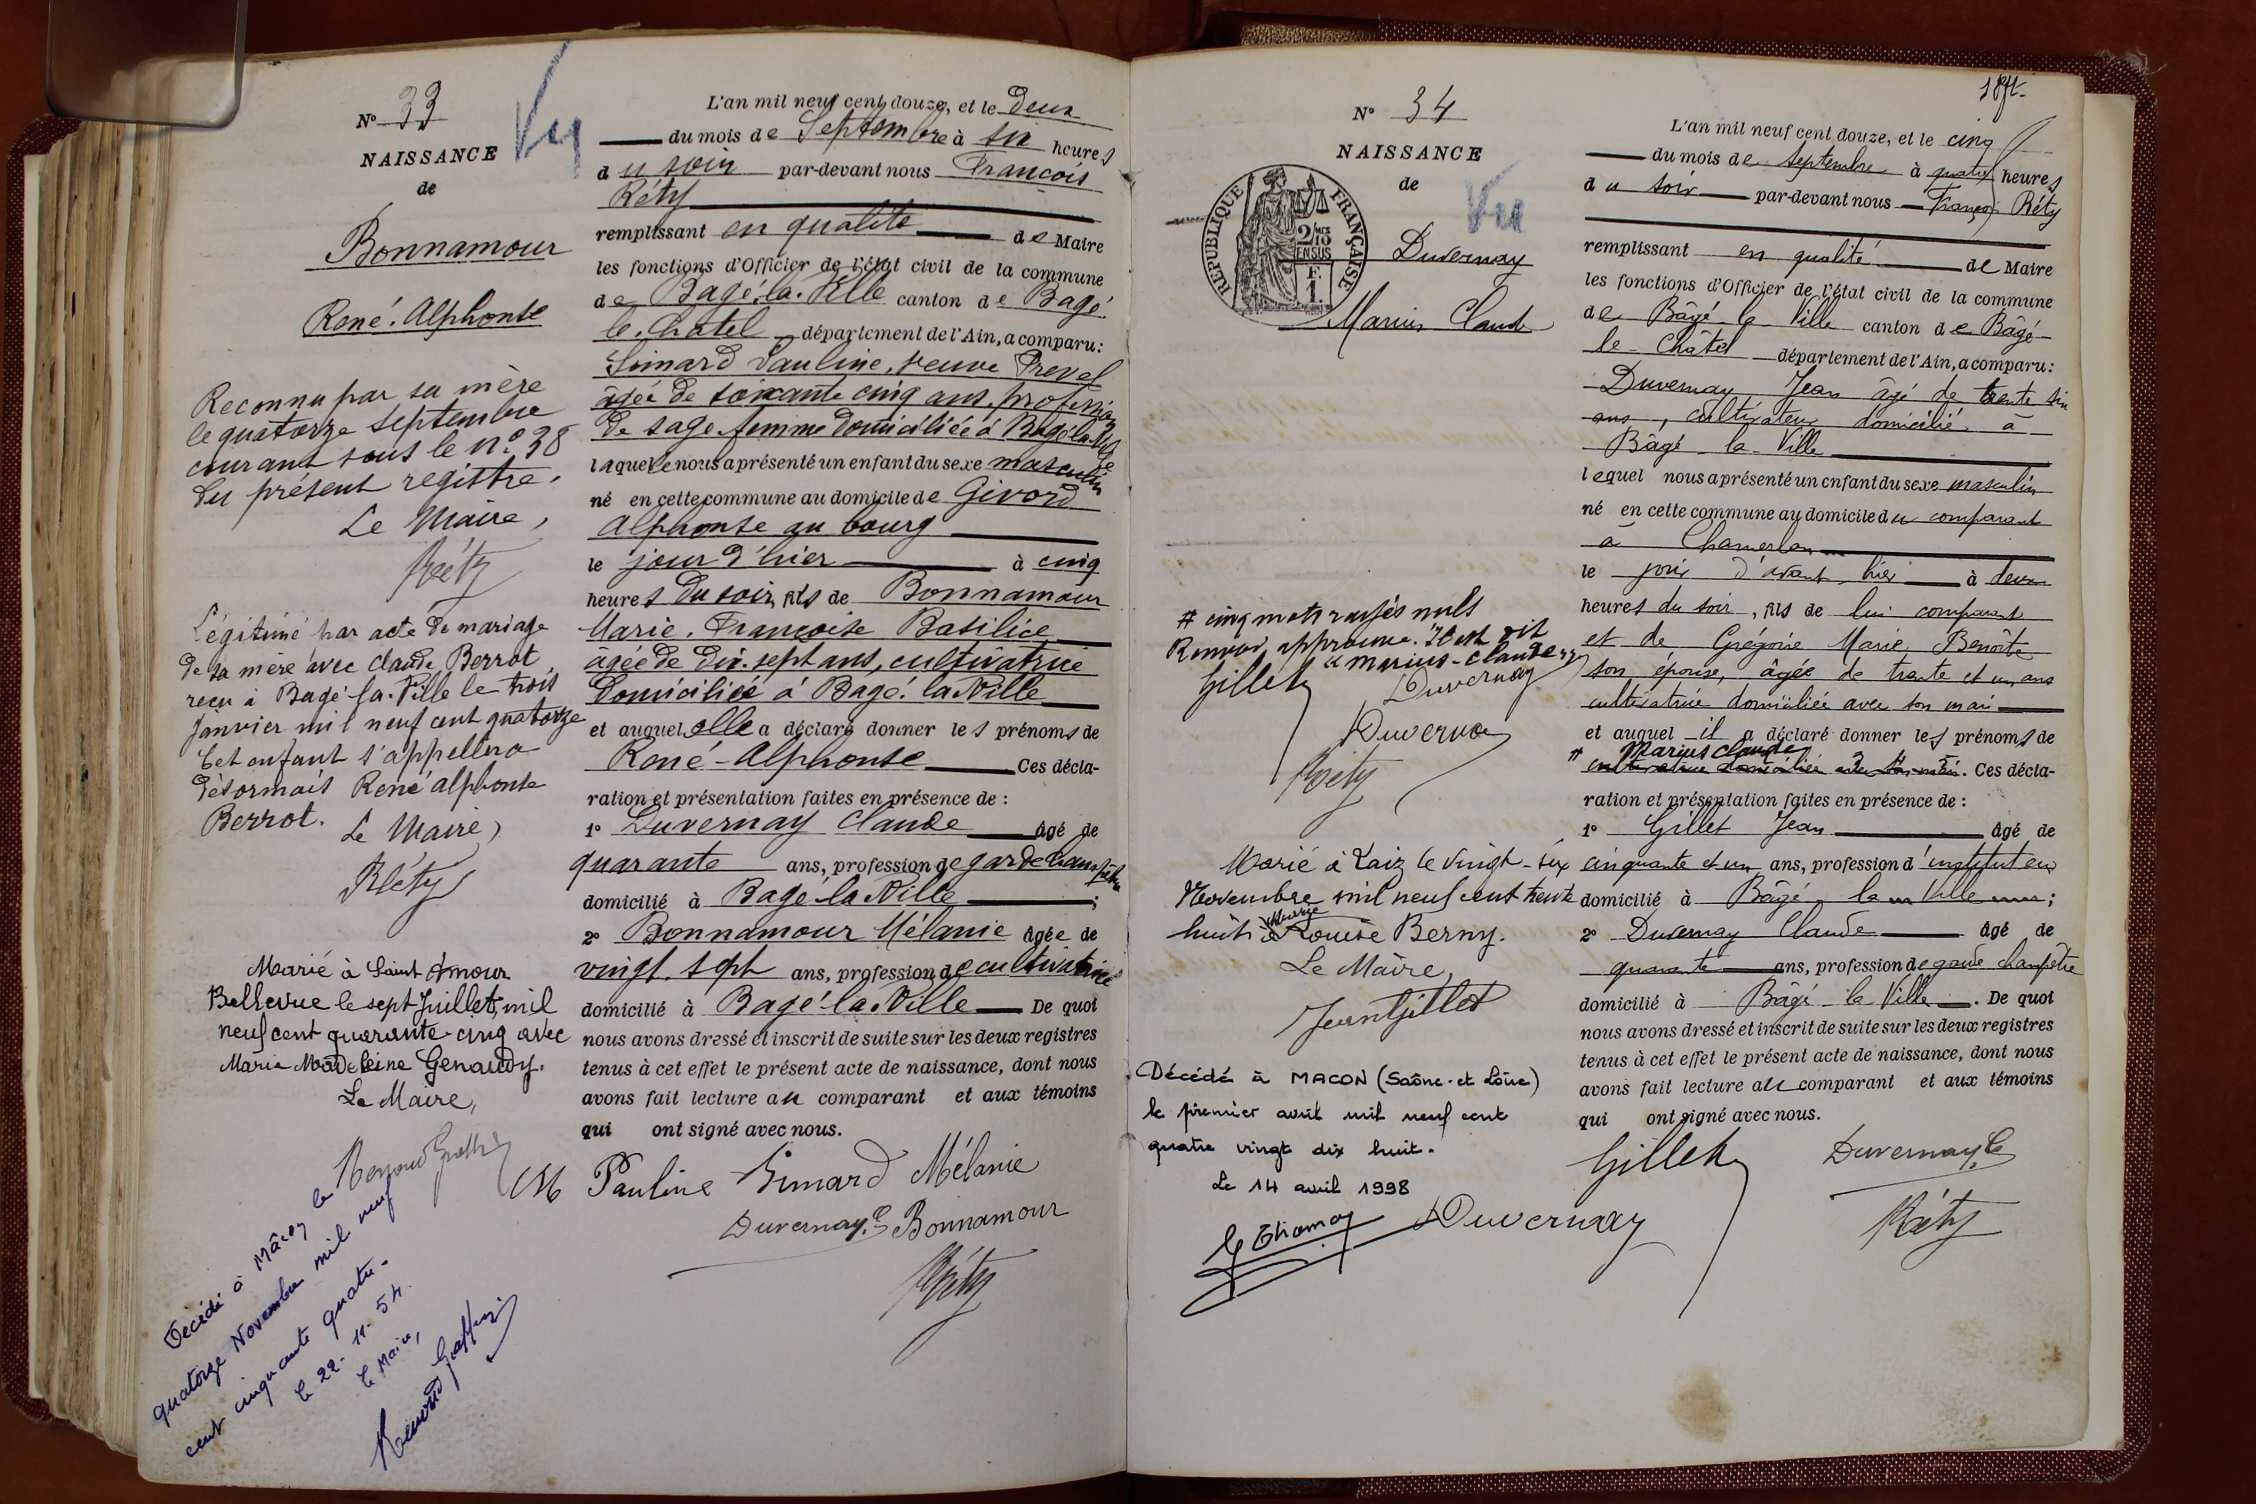 N° 33
NAISSANCE
de
Bonnamour
René-Alphonse
Vu
Reconnu par sa mère
le quatorze septembre
courant sous le n° 38
du présent registre.
Le Maire,
Réty
Légitimé par acte de mariage
de sa mère avec Claude Berrot
reçu à Bagé-la-Ville le trois
Janvier mil neuf cent quatorze
Cet enfant s'appellera
désormais René Alphonse
Berrot.
Le Maire,
Réty
Marié à Saint Amour
Bellevue le sept Juillet mil
neuf cent quarante cinq avec
Maria Madeleine Genaudy.
Le Maire,
Décédé à Mâcon le
quatorze Novembre mil neuf
cent cinquante quatre.
le 22-11-54.
le Maire,
L'an mil neuf cent douze, et le Deux
du mois de Septembre à six heures
du soir par-devant nous François
Réty
remplissant en qualité de Maire
les fonctions d'Officier de l'état civil de la commune
de Bagé-la-Ville canton de Bagé-
le-Châtel département de l'Ain, a comparu:
Simard Pauline, veuve Prevel
âgée de soixante cinq ans, profession
de sage-femme domiciliée à Bagé la Ville
laquelle nous a présenté un enfant du sexe masculin
né en cette commune au domicile de Givord
Alphonse au bourg
le jour d'hier à cinq
heures du soir, fils de Bonnamour
Marie-Françoise Basilice
âgée de dix-sept ans, cultivatrice
domiciliée à Bagé-la-Ville
et auquel elle a déclaré donner les prénoms de
René-Alphonse Ces décla-
ration et présentation faites en présence de :
1° Duvernay Claude âgé de
quarante ans, profession de garde champêtre
domicilié à Bagé-la-Ville ;
2° Bonnamour Mélanie âgée de
vingt-sept ans, profession de cultivatrice
domicilié à Bagé-la-Ville De quoi
nous avons dressé et inscrit de suite sur les deux registres
tenus à cet effet le présent acte de naissance, dont nous
avons fait lecture au comparant et aux témoins
qui ont signé avec nous.
Pauline Simard Mélanie
Duvernay C Bonnamour
Réty
N° 34
NAISSANCE
de
Vu
REPUBLIQUE FRANÇAISE
2/10 EN SUS
F.
1.
Duvernay
Marius Claude
# cinq mots rayés nuls
Renvoi approuvé. Il est dit
"Marius-Claude"
Gillet
Duvernay
Duvernay
Réty
Marié à Laiz le vingt-six
Novembre mil neuf cent trente
huit à Marie Louise Berny.
Le Maire,
Jean Gillet
Décédé à MACON (Saône-et-Loire)
le premier avril mil neuf cent
quatre vingt dix huit.
Le 14 avril 1998
G Thomas
L'an mil neuf cent douze, et le cinq
du mois de septembre à quatre heures
du soir par-devant nous François Réty
remplissant en qualité de Maire
les fonctions d'Officier de l'état civil de la commune
de Bâgé la Ville canton de Bâgé-
le-Châtel département de l'Ain, a comparu:
Duvernay Jean âgé de trente six
ans, cultivateur domicilié à
Bâgé-la-Ville
lequel nous a présenté un enfant du sexe masculin
né en cette commune au domicile du comparant
à Chamerlan
le jour d'avant hier à deux
heures du soir, fils de lui comparant
et de Grégoire Marie Benoîte
son épouse, âgée de trente et un ans
cultivatrice domiciliée avec son mari
et auquel il a déclaré donner les prénoms de
# Marius Claude
cultivatrice domiciliée avec son mari. Ces décla-
ration et présentation faites en présence de :
1° Gillet Jean âgé de
cinquante et un ans, profession d'instituteur
domicilié à Bâgé-la-Ville ;
2° Duvernay Claude âgé de
quarante ans, profession de garde champêtre
domicilié à Bâgé la Ville. De quoi
nous avons dressé et inscrit de suite sur les deux registres
tenus à cet effet le présent acte de naissance, dont nous
avons fait lecture au comparant et aux témoins
qui ont signé avec nous.
Gillet Duvernay C
Duvernay Réty